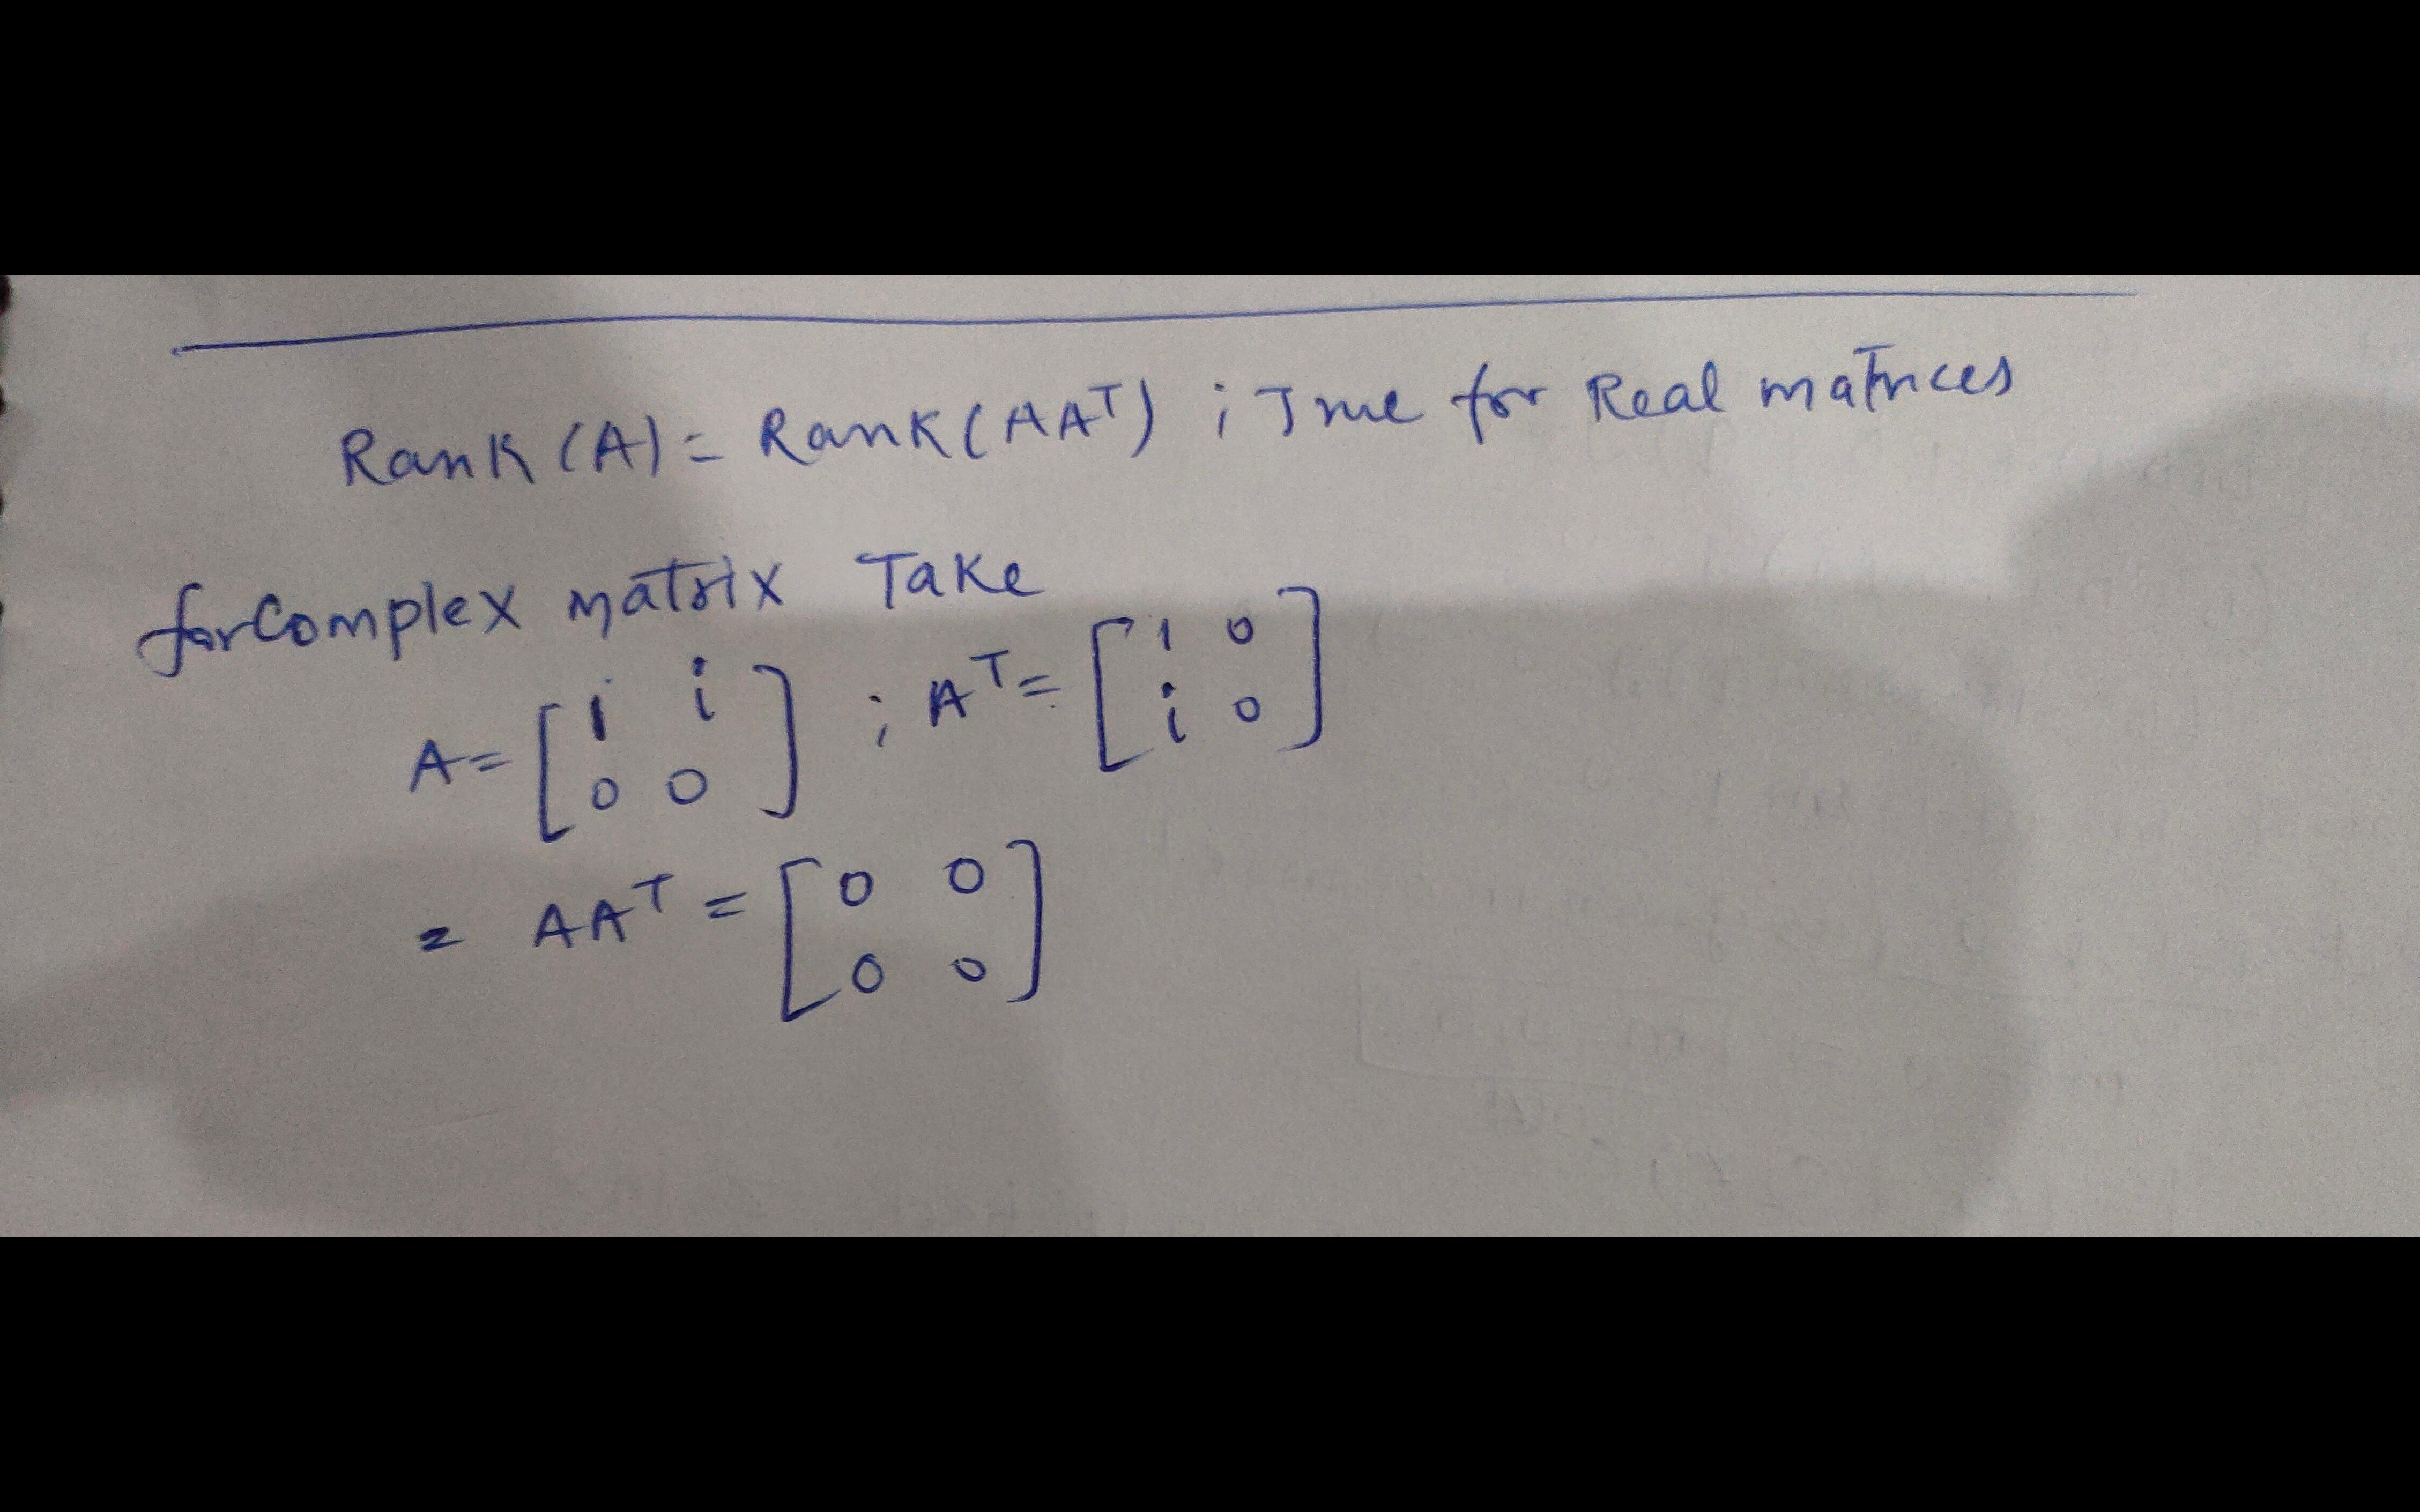 Rank (A) = Rank (AAᵀ) ; True for Real matrices
for Complex matrix Take
A = [1 i; 0 0] ; Aᵀ = [1 0; i 0]
= AAᵀ = [0 0; 0 0]